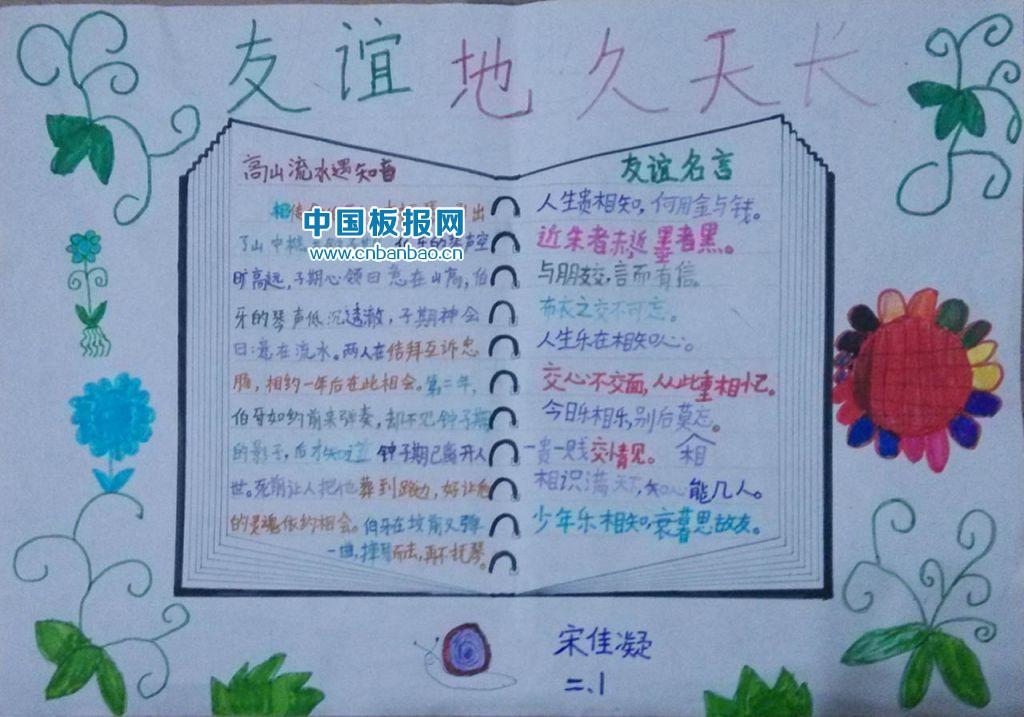 友谊地久天长
高山流水遇知音
中国板报网
www.cnbanbao.cn
出
了山中 的琴声空
旷高远,子期心领曰意在山高,伯
牙的琴声低沉透澈,子期神会
曰:意在流水。两人在结拜互诉忠
肠,相约一年后在此相会。第二年,
伯牙如约前来弹奏,却不见钟子期
的影子,后才知道钟子期已离开人
世。死期让人把他葬到路边,好让他
的灵魂依约相会。伯牙在坟前又弹
一曲,摔琴而去,再不抚琴。
友谊名言
人生贵相知,何用金与钱。
近朱者赤,近墨者黑。
与朋友交,言而有信。
布衣之交不可忘。
人生乐在相知心。
交心不交面,从此重相忆。
今日乐相乐,别后莫忘。
一贵一贱交情见。 相
相识满天下,知心能几人。
少年乐相知,衰暮思故友。
宋佳凝
二、1